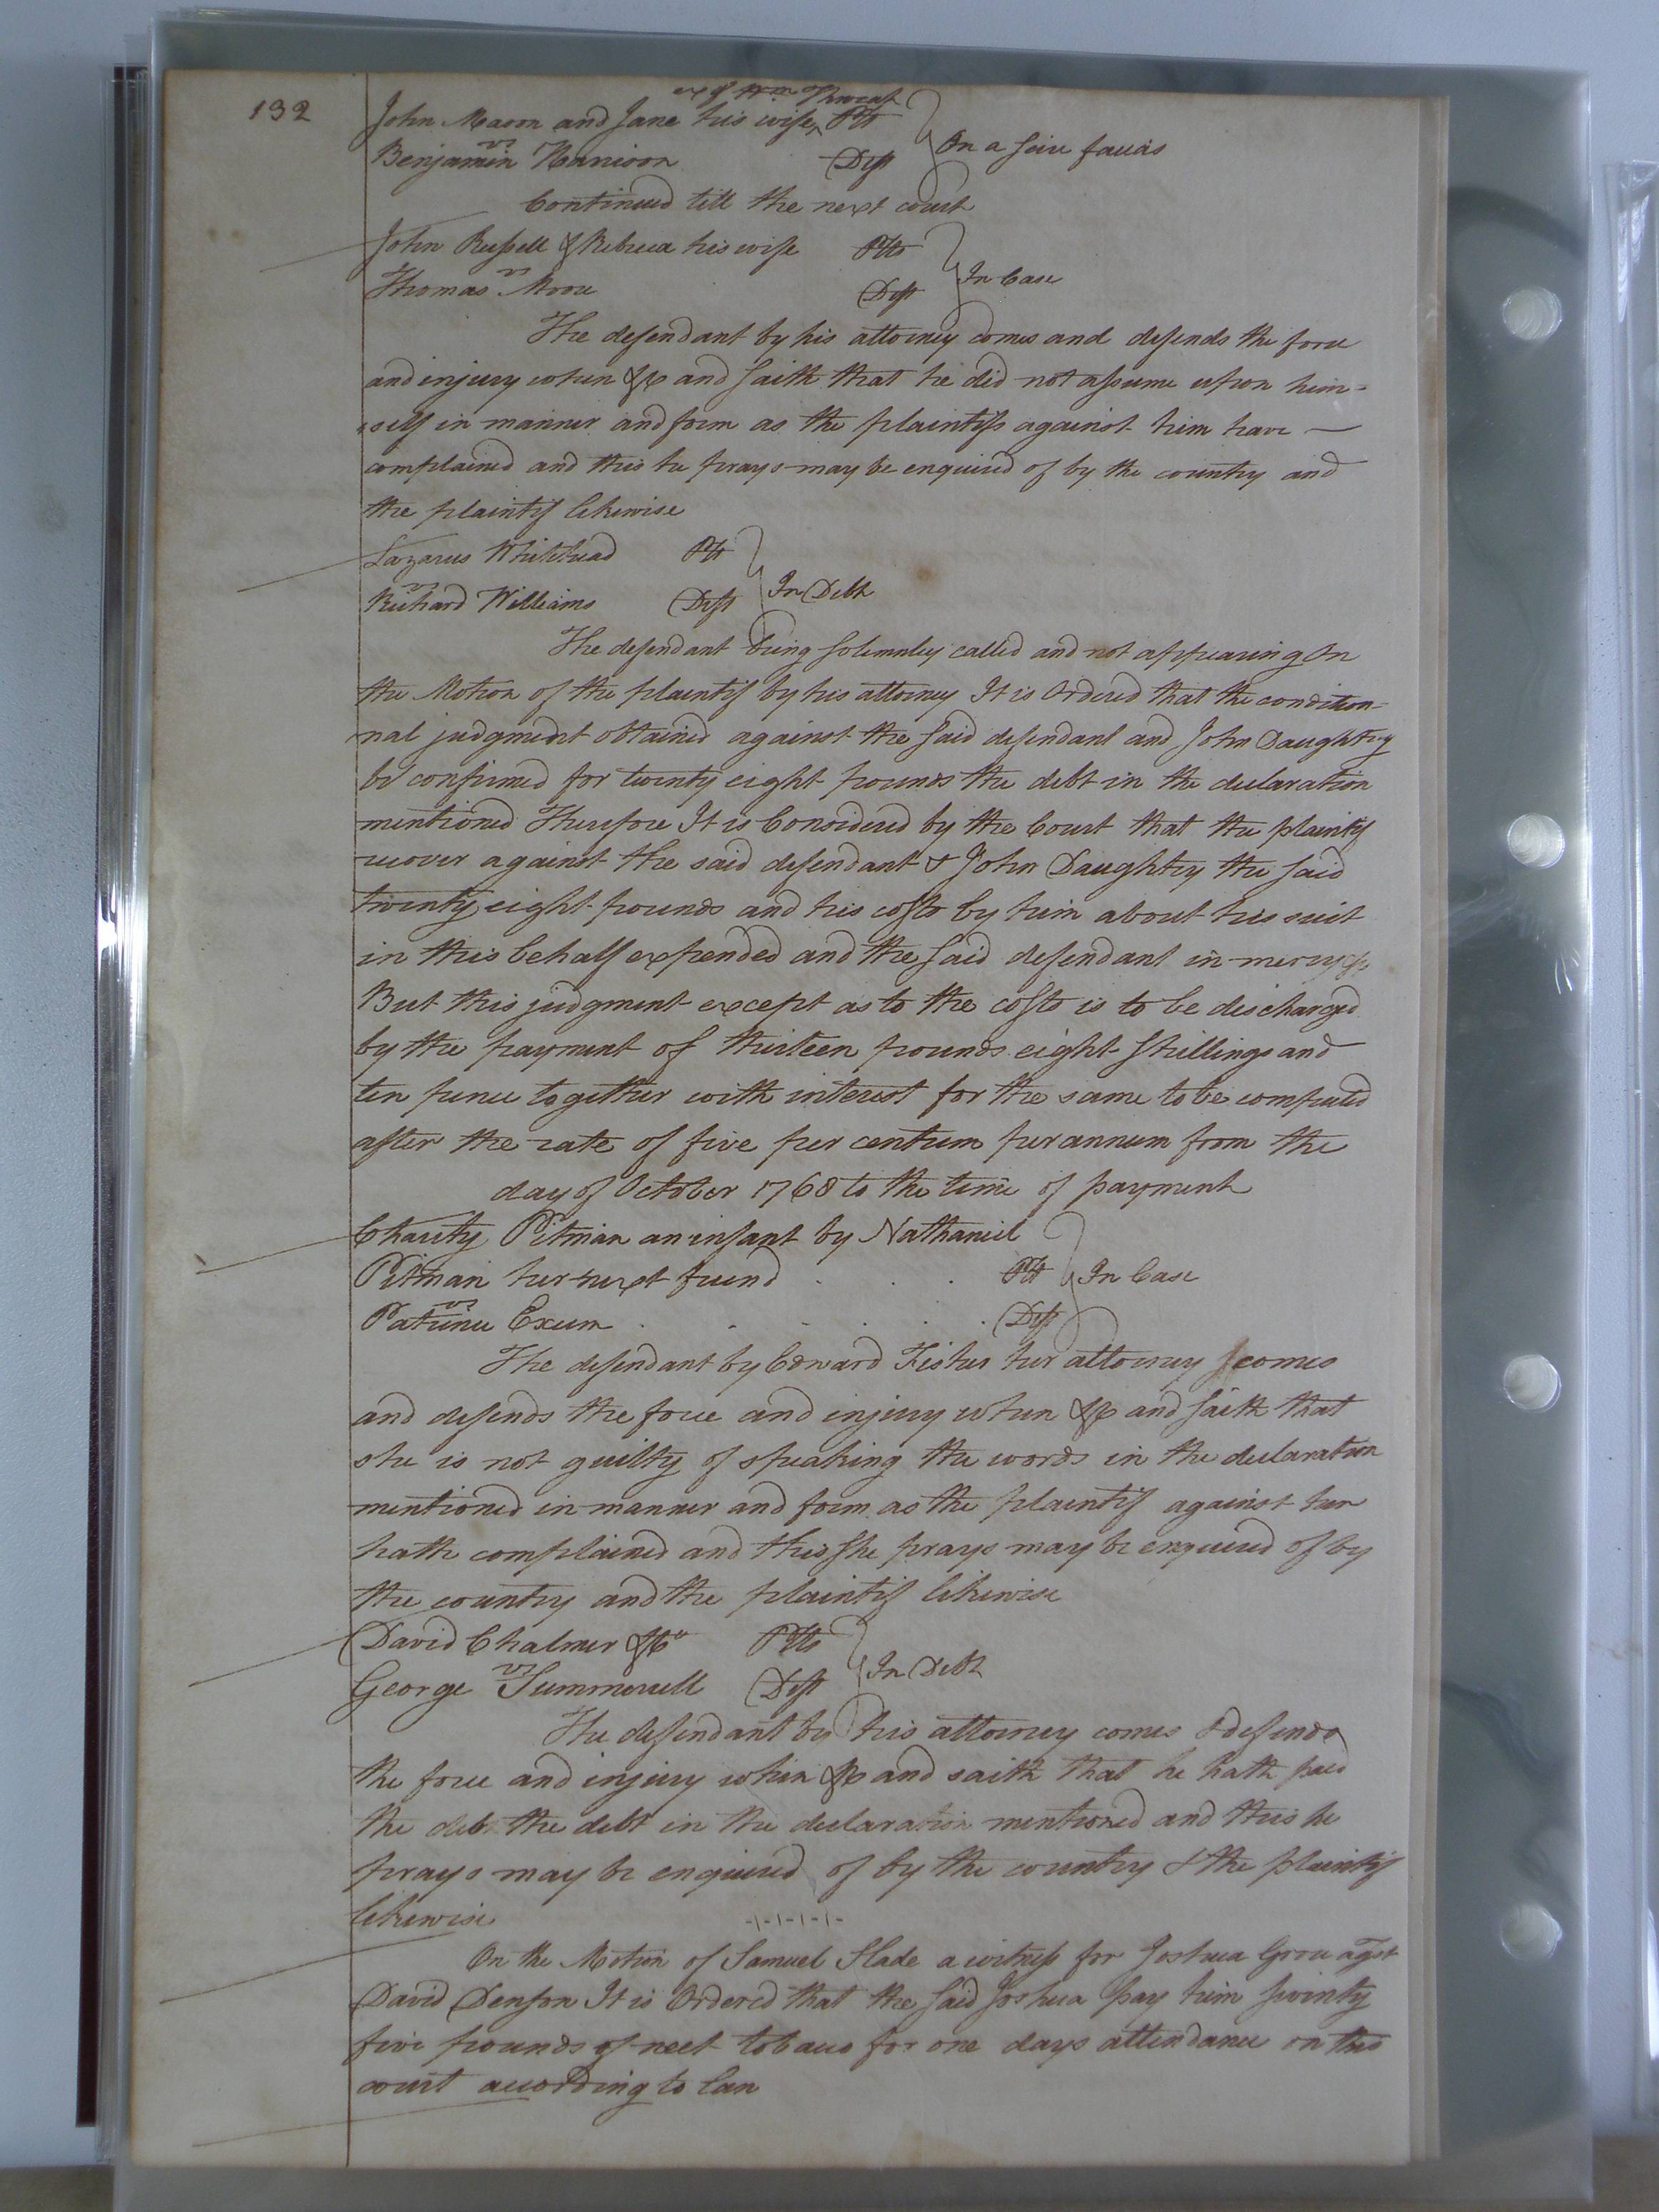 132
ex of Wm Thweat
John Mason and Jane his wife, Plt
vs
Benjamin Harrison Deft
On a scire facias
Continued till the next court
John Russell & Rebecca his wife Plts
vs
Thomas Moore Deft
In Case
The defendant by his attorney comes and defends the force
and injury when &c and saith that he did not assume upon him=
=self in manner and form as the plaintifs against him have —
complained and this he prays may be enquired of by the country and
the plaintif likewise
Lazarus Whitehead Plt
vs
Richard Williams Deft
In Debt
The defendant being solemnley called and not appearing On
the Motion of the plaintif by his attorney It is Ordered that the condition=
nal judgment obtained against the said defendant and John Daughtry
be confirmed for twenty eight pounds the debt in the declaration
mentioned Therefore It is Considered by the Court that the plaintif
recover against the said defendant & John Daughtry the said
twenty eight pounds and his costs by him about his suit
in this behalf expended and the said defendant in mercy &c
But this judgment except as to the costs is to be discharged
by the payment of thirteen pounds eight shillings and
ten pence together with interest for the same to be computed
after the rate of five per centum per annum from the
day of October 1768 to the time of payment
Charity Pitman an infant by Nathaniel
Pitman her next friend . . . Plt
vs
Patience Exum . . . . . Deft
In Case
The defendant by Edward Fisher her attorney comes
and defends the force and injury when &c and saith that
she is not guilty of speaking the words in the declaration
mentioned in manner and form as the plaintif against her
hath complained and this she prays may be enquired of by
the country and the plaintif likewise
David Chalmer & Co Plts
vs
George Summerell Deft
In Debt
The defendant by his attorney comes & defends
the force and injury when &c and saith that he hath paid
the debt the debt in the declaration mentioned and this he
prays may be enquired of by the country & the plaintif
likewise
On the Motion of Samuel Slade a witness for Joshua Grove agst
David Denson It is Ordered that the said Joshua pay him twenty
five pounds of neet tobacco for one days attendance on this
court according to Law